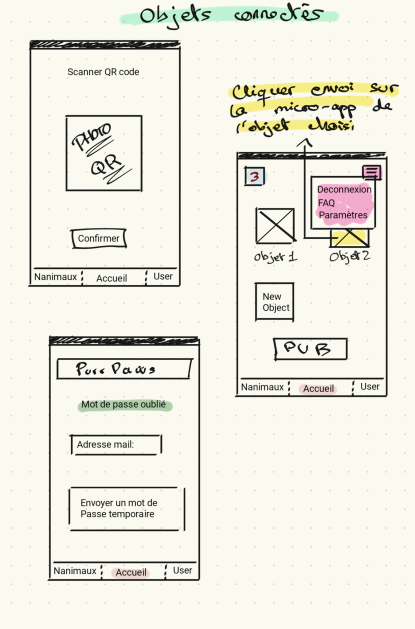 Objets connectés
Scanner QR code
PHOTO
QR
Confirmer
Nanimaux Accueil User
Cliquer envoi sur
la micro-app de
l'objet choisi
3
Deconnexion
FAQ
Paramètres
Objet 1 Objet 2
New
Object
PUB
Nanimaux Accueil User
Purr Paws
Mot de passe oublié
Adresse mail:
Envoyer un mot de
Passe temporaire
Nanimaux Accueil User